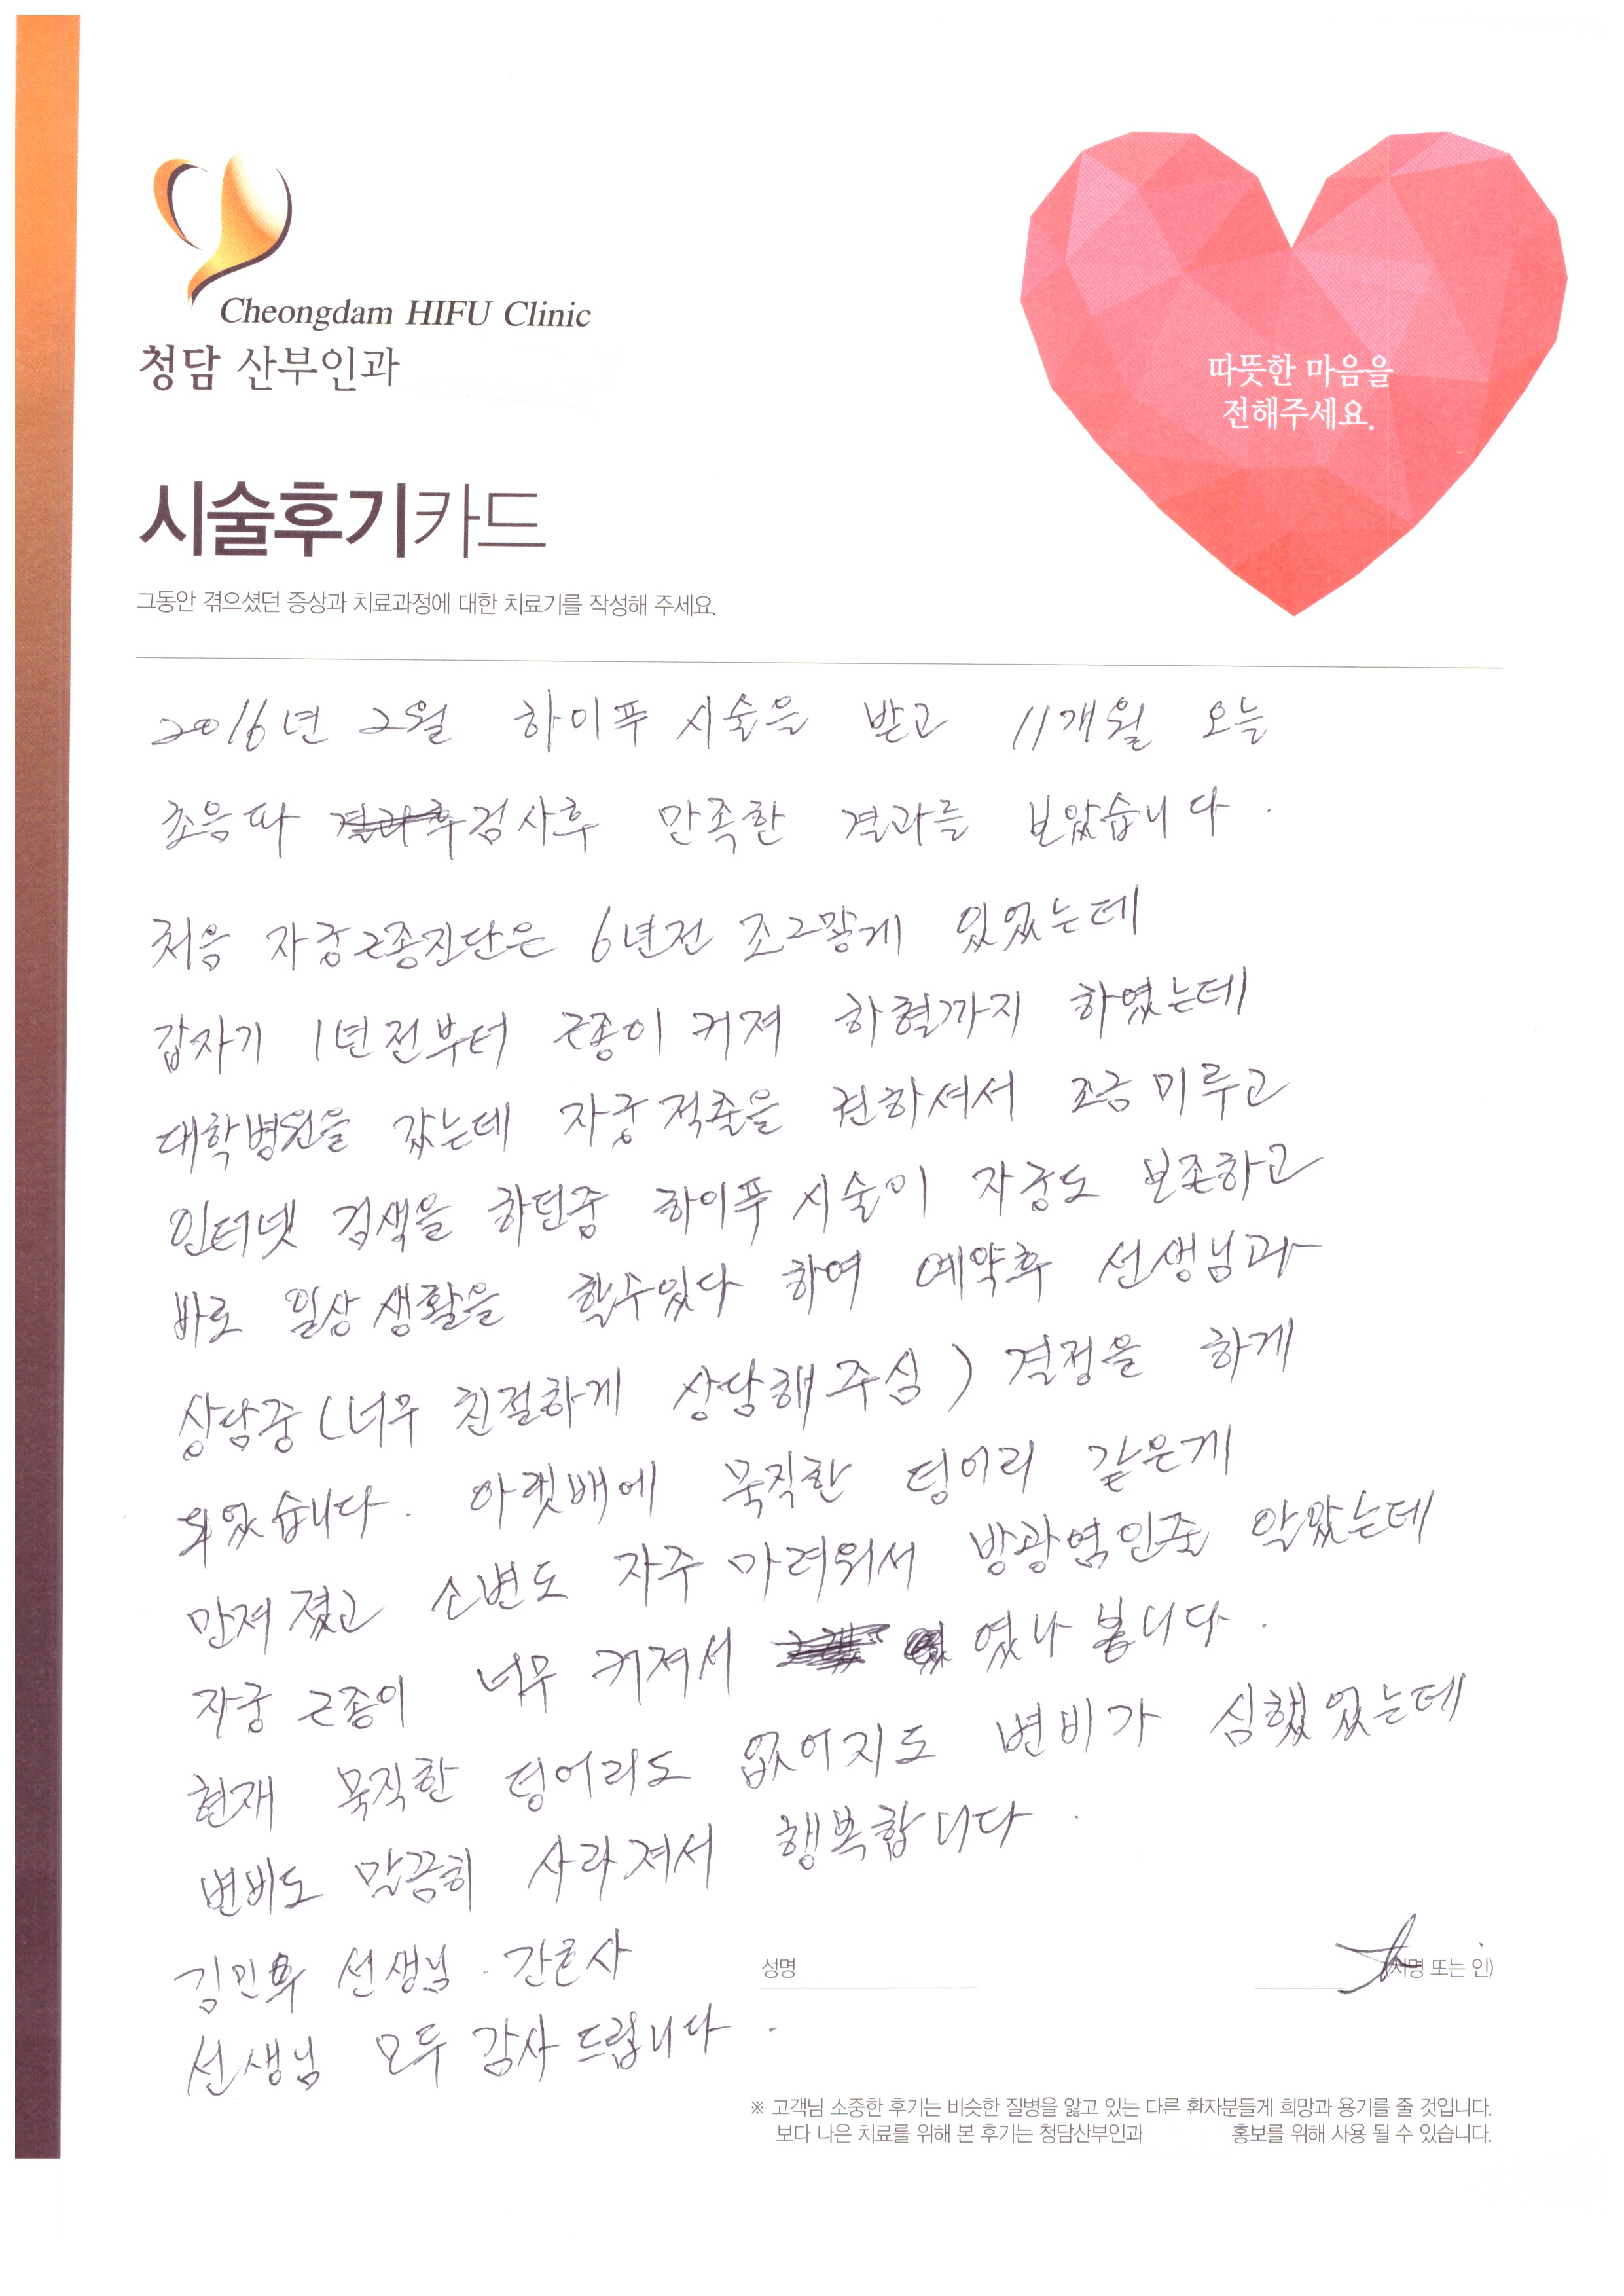 Cheongdam HIFU Clinic
청담 산부인과
따뜻한 마음을
전해주세요.
시술후기카드
그동안 겪으셨던 증상과 치료과정에 대한 치료기를 작성해 주세요.
2016년 2월 하이푸 시술을 받고 11개월 오늘
초음파 결과후 검사후 만족한 결과를 보았습니다.
처음 자궁근종진단은 6년전 조그맣게 있었는데
갑자기 1년전부터 근종이 커져 하혈까지 하였는데
대학병원을 갔는데 자궁적출을 권하셔서 조금 미루고
인터넷 검색을 하던중 하이푸 시술이 자궁도 보존하고
바로 일상생활을 할수있다 하여 예약후 선생님과
상담중(너무 친절하게 상담해주심) 결정을 하게
되었습니다. 아랫배에 묵직한 덩어리 같은게
만져졌고 소변도 자주 마려워서 방광염인줄 알았는데
자궁근종이 너무 커져서 였나 봅니다.
현재 묵직한 덩어리도 없어지도 변비가 심했었는데
변비도 말끔히 사라져서 행복합니다.
김민우 선생님. 간호사
선생님 모두 감사드립니다.
성명 (서명 또는 인)
※ 고객님 소중한 후기는 비슷한 질병을 앓고 있는 다른 환자분들게 희망과 용기를 줄 것입니다.
보다 나은 치료를 위해 본 후기는 청담산부인과 홍보를 위해 사용 될 수 있습니다.